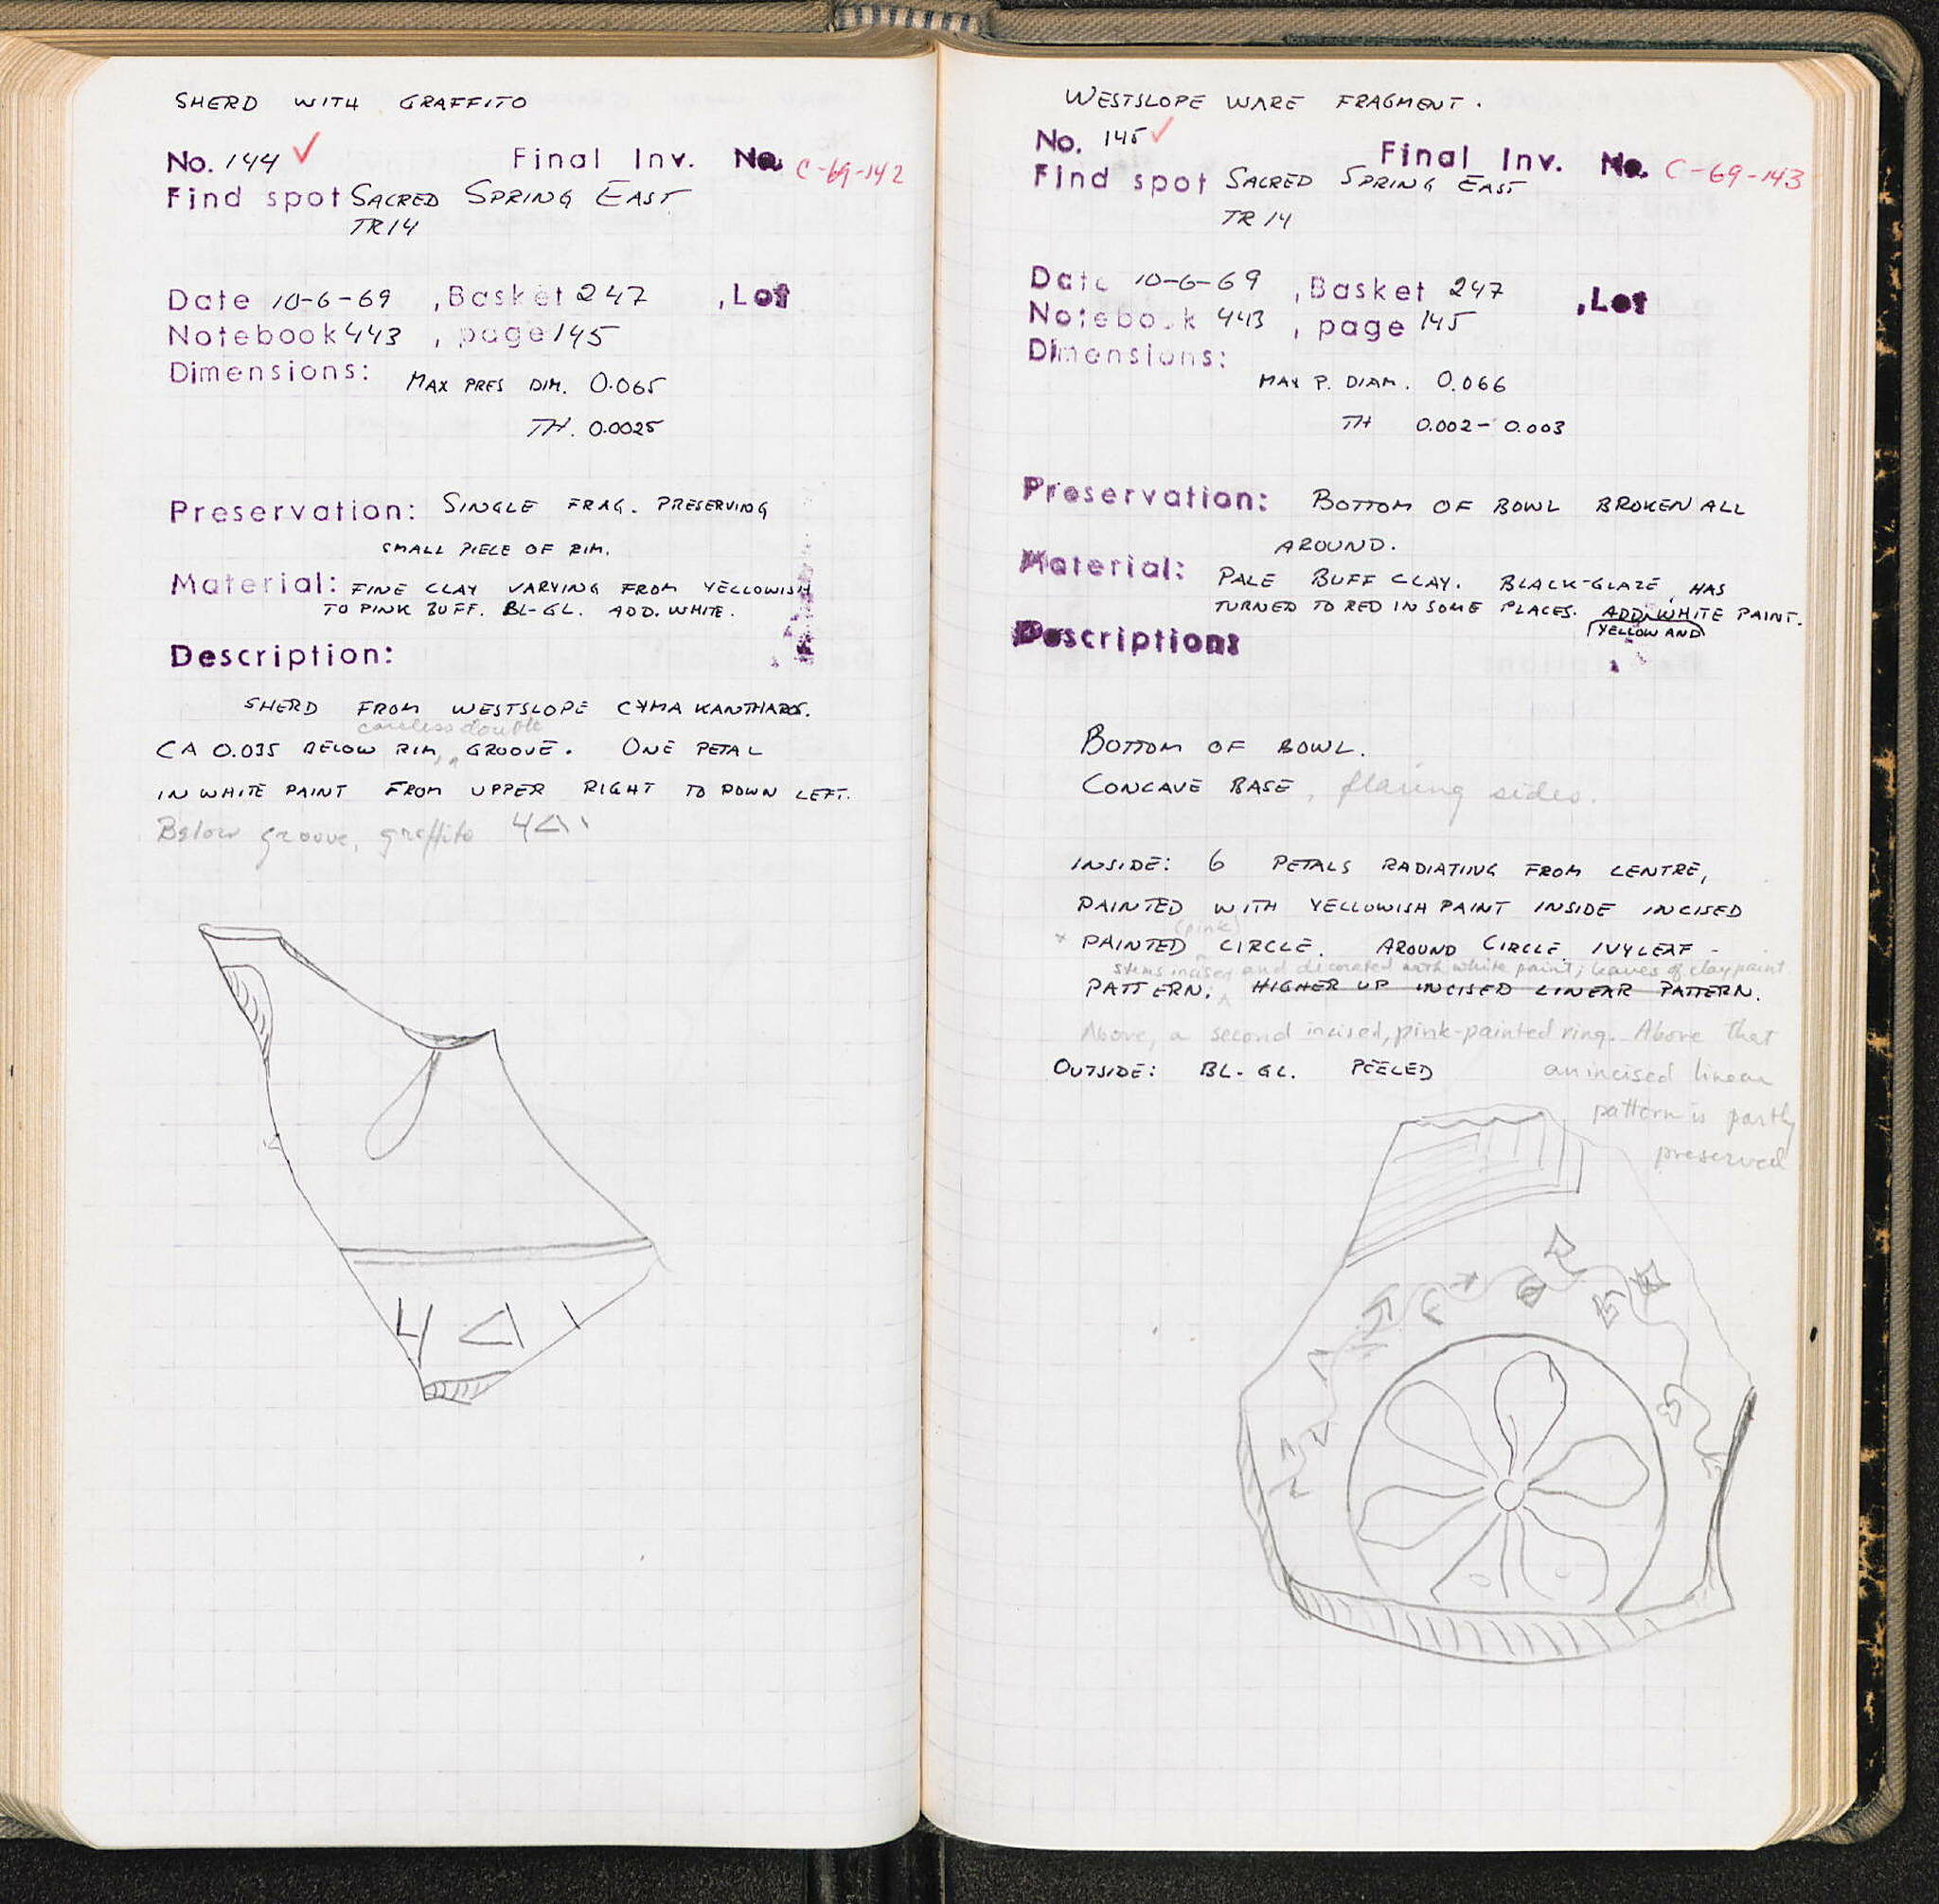 SHERD WITH GRAFFITO
No. 144 ✓ Final Inv. No. C-69-142
Find spot SACRED SPRING EAST
TR 14
Date 10-6-69 , Basket 247 , Lot
Notebook 443 , page 145
Dimensions: MAX PRES DIM. 0.065
TH. 0.0025
Preservation: SINGLE FRAG. PRESERVING
SMALL PIECE OF RIM.
Material: FINE CLAY VARYING FROM YELLOWISH
TO PINK BUFF. BL-GL. ADD. WHITE.
Description:
SHERD FROM WESTSLOPE CYMA KANTHAROS.
careless double
CA 0.035 BELOW RIM, GROOVE. ONE PETAL
IN WHITE PAINT FROM UPPER RIGHT TO DOWN LEFT.
Below groove, graffito
WESTSLOPE WARE FRAGMENT.
No. 145 ✓ Final Inv. No. C-69-143
Find spot SACRED SPRING EAST
TR 14
Date 10-6-69 , Basket 247 , Lot
Notebook 443 , page 145
Dimensions:
MAX P. DIAM. 0.066
TH 0.002 - 0.003
Preservation: BOTTOM OF BOWL BROKEN ALL
AROUND.
Material: PALE BUFF CLAY. BLACK-GLAZE, HAS
TURNED TO RED IN SOME PLACES. ADD. WHITE PAINT.
YELLOW AND
Description:
BOTTOM OF BOWL.
CONCAVE BASE, flaring sides.
INSIDE: 6 PETALS RADIATIUG FROM CENTRE,
PAINTED WITH YELLOWISH PAINT INSIDE INCISED
(pink)
x PAINTED CIRCLE. AROUND CIRCLE IVYLEAF -
stems incised and decorated with white paint; leaves of clay paint.
PATTERN. HIGHER UP INCISED LINEAR PATTERN.
Above, a second incised, pink-painted ring. Above that
OUTSIDE: BL-GL. PEELED an incised linear
pattern is partly
preserved